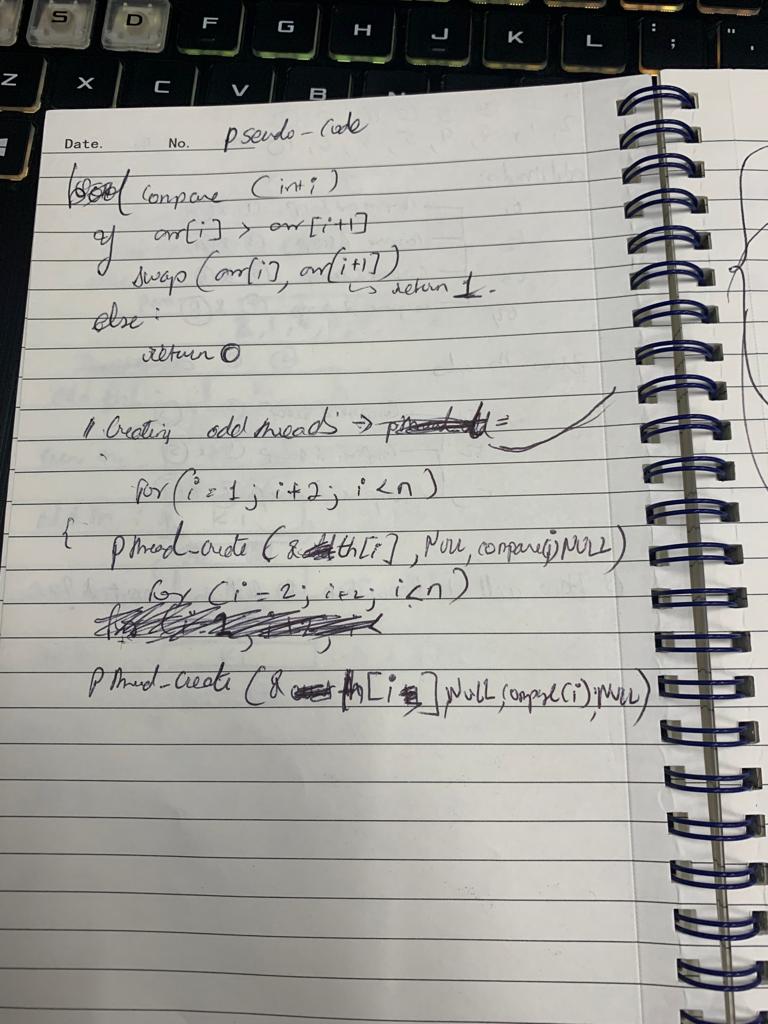 S D F G H J K L : ; "
Z X C V B N
Date. No. Pseudo-Code
compare (int i)
if arr[i] > arr[i+1]
swap (arr[i], arr[i+1])
↳ return 1.
else :
return 0
// Creating odd threads → =
for (i = 1; i+2; i < n)
{ pthread_create (& th[i], NULL, compare(i) NULL)
for (i = 2; i+2; i < n)
pthread_create (& th[i], NULL, compare(i), NULL)